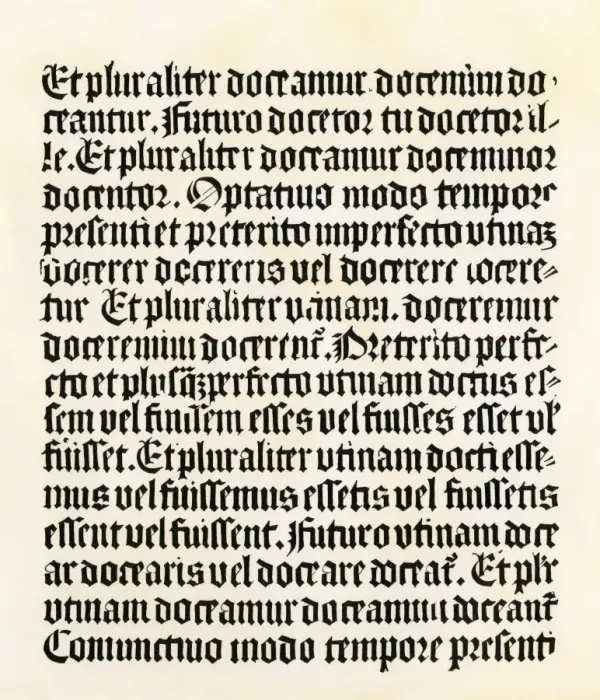 Et pluraliter doceamur docemini do-
ceantur. Futuro docetor tu docetor il-
le. Et pluraliter doceamur doceminor
docentor. Optatiuo modo tempore
presenti et preterito imperfecto vtinaʒ
docerer docereris vel docerere docere-
tur Et pluraliter vtinam. doceremur
doceremini docerent᷑. Preterito perfe-
cto et plusqʒperfecto vtinam doctus es-
sem vel fuissem esses vel fuisses esset vl̓
fuisset. Et pluraliter vtinam docti esse-
mus vel fuissemus essetis vel fuissetis
essent vel fuissent. Futuro vtinam doce
ar docearis vel doceare doceat᷑. Et pl̓r
vtinam doceamur doceamini doceant᷑
Coniunctiuo modo tempore presenti